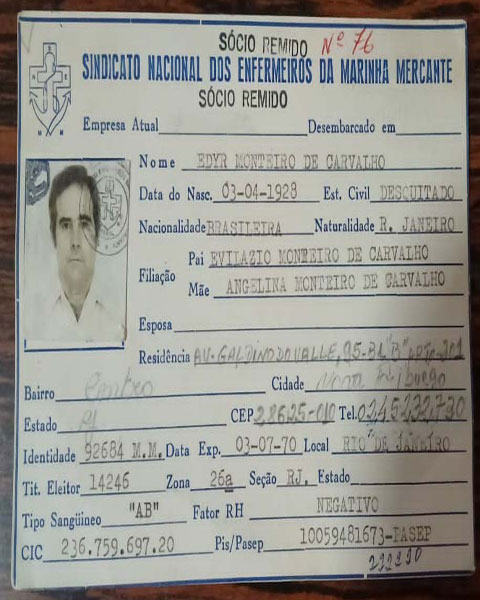 SÓCIO REMIDO Nº 76
SINDICATO NACIONAL DOS ENFERMEIROS DA MARINHA MERCANTE
SÓCIO REMIDO
Empresa Atual Desembarcado em
Nome EDYR MONTEIRO DE CARVALHO
Data do Nasc. 03-04-1928 Est. Civil DESQUITADO
Nacionalidade BRASILEIRA Naturalidade R. JANEIRO
Filiação
Pai EVILAZIO MONTEIRO DE CARVALHO
Mãe ANGELINA MONTEIRO DE CARVALHO
Esposa
Residência AV. GALDINO DO VALLE, 95-BL "B" APTº-201
Bairro Centro Cidade Nova Friburgo
Estado RJ CEP 28625-010 Tel.
Identidade 92684 M.M. Data Exp. 03-07-70 Local RIO DE JANEIRO
Tit. Eleitor 14246 Zona 26a Seção RJ. Estado
Tipo Sangüineo "AB" Fator RH NEGATIVO
CIC 236.759.697.20 Pis/Pasep 10059481673-PASEP